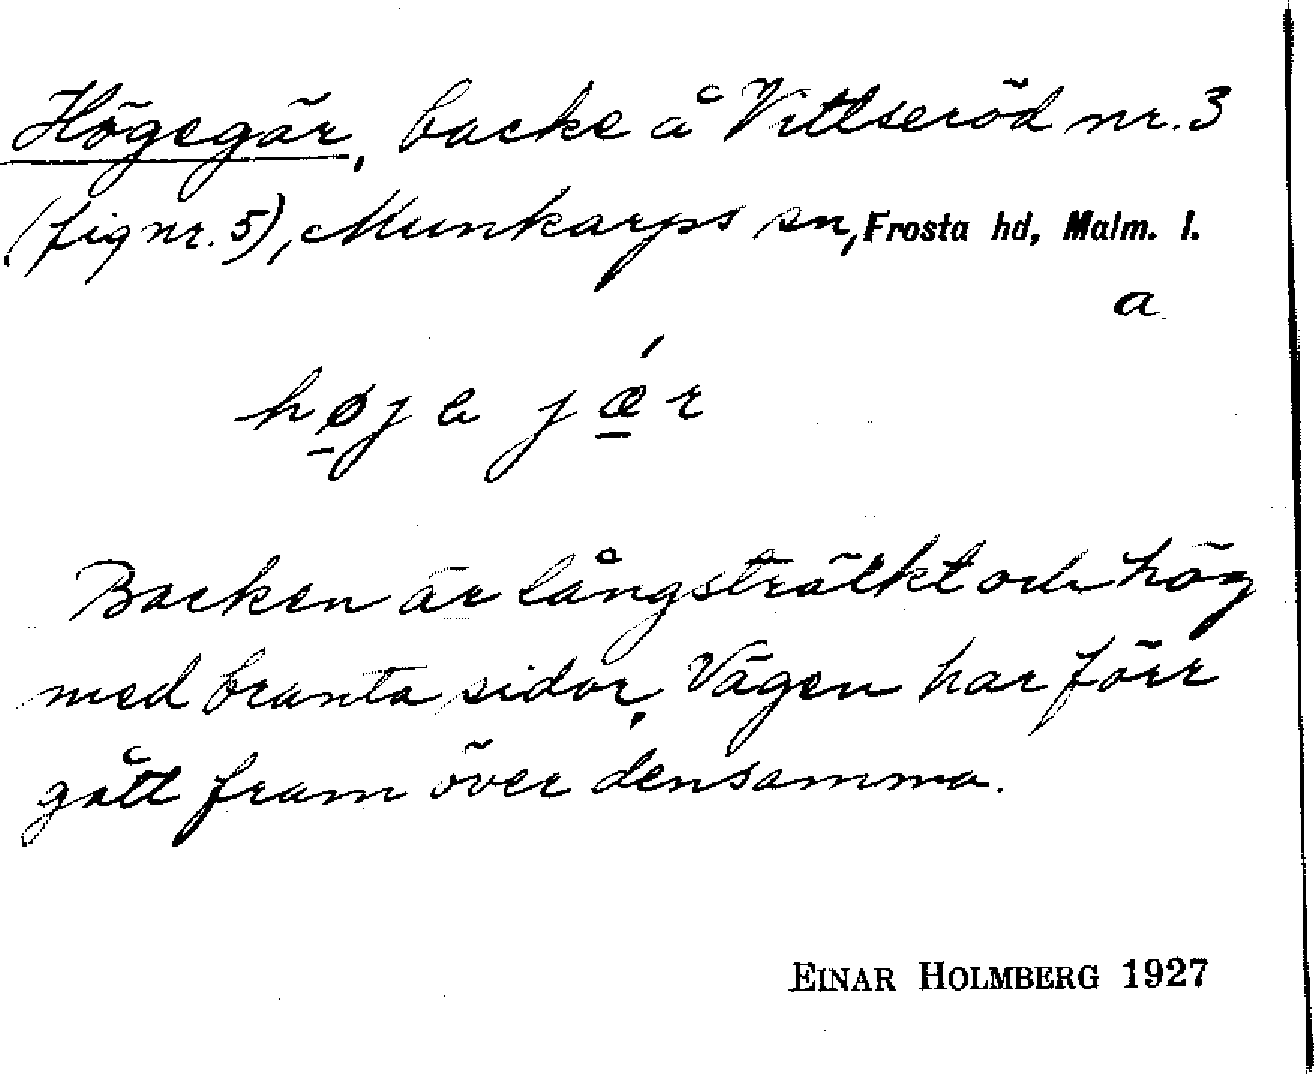 Högegär, backe å Vittseröd nr. 3
(fig nr. 5), Munkarps sn, Frosta hd, Malm. l.
a
høja jǽr
Backen är långsträkt och hög
med branta sidor. Vägen har förr
gått fram över densamma.
EINAR HOLMBERG 1927